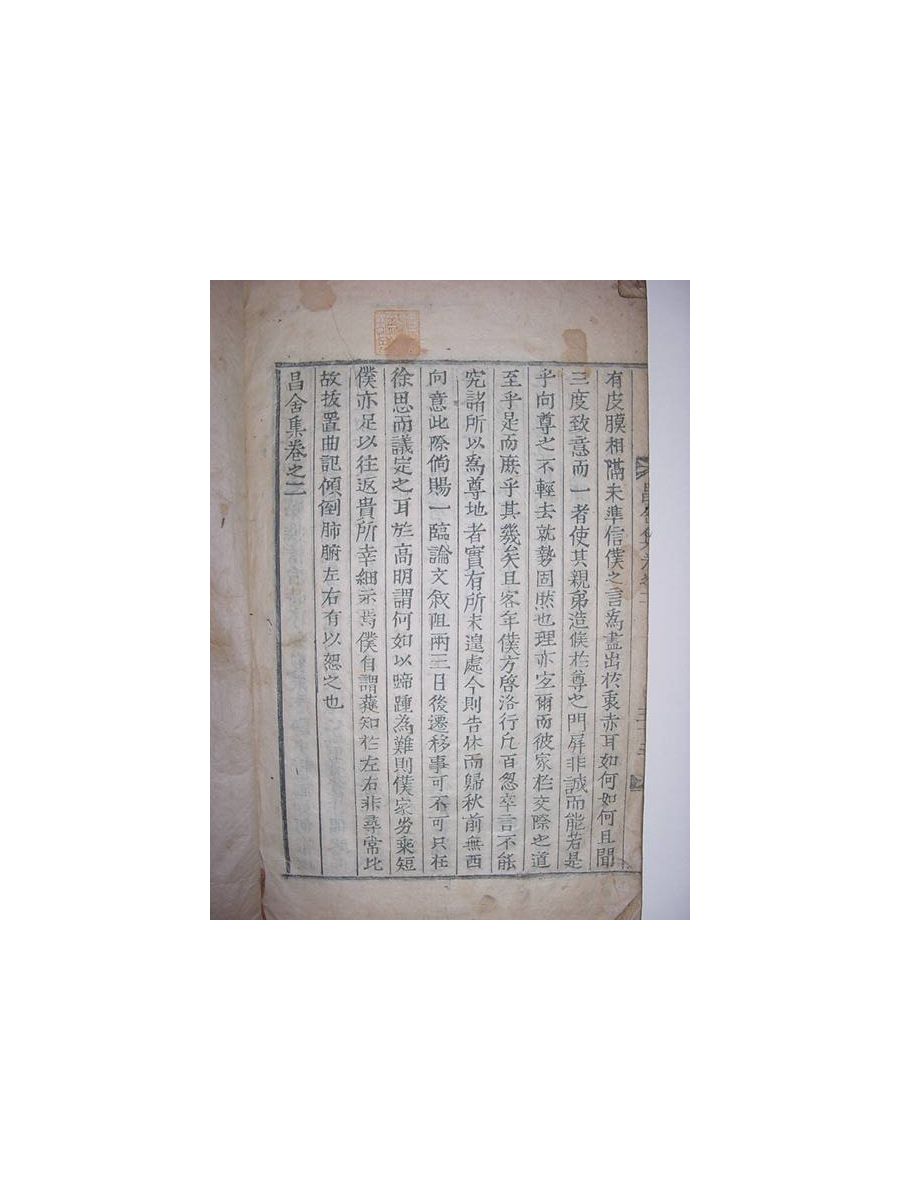 有皮膜相隔未準信僕之言為盡出於衷赤耳如何如何且聞
三度致意而一者使其親弟造候於尊之門屏非誠而能若是
乎向尊之不輕去就勢固然也理亦宜爾而彼家於交際之道
至乎是而庶乎其幾矣且客年僕方啓洛行凡百怱卒言不能
究諸所以爲尊地者實有所未遑處今則告休而歸秋前無西
向意此際倘賜一臨論文叙阻兩三日後遷移事可不可只在
徐思而議定之耳於高明謂何如以蹄踵為難則僕家劣乘短
僕亦足以往返貴所幸細示焉僕自謂蕤知於左右非尋常比
故拔置曲記傾倒肺腑左右有以恕之也
昌舍集卷之二